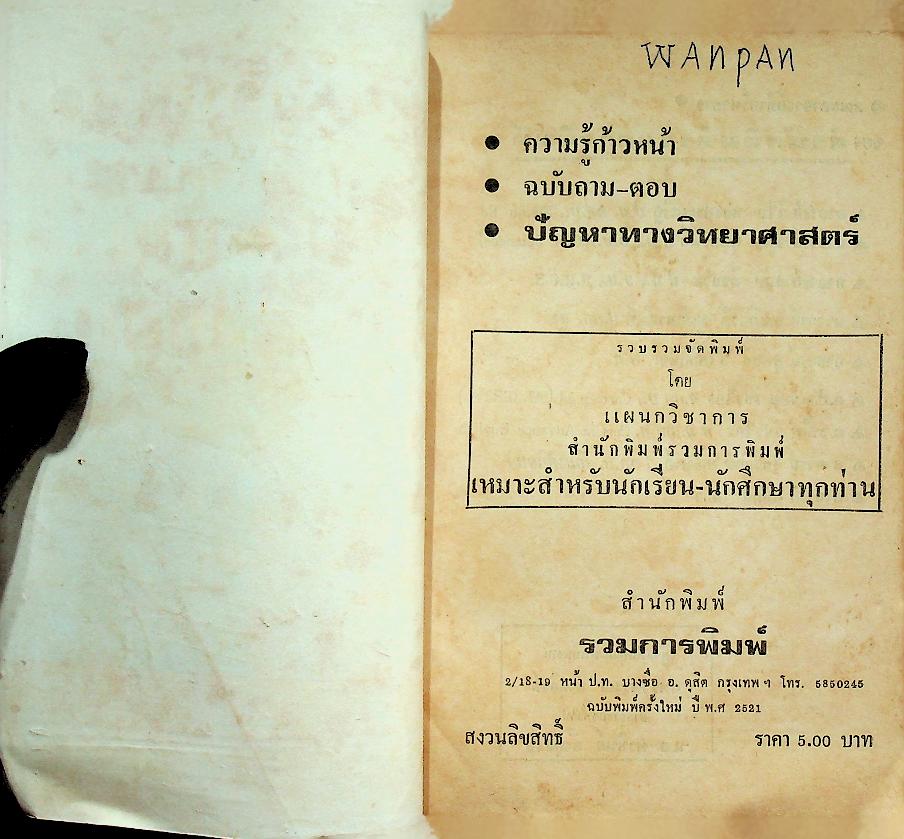 WANPAN
● ความรู้ก้าวหน้า
● ฉบับถาม-ตอบ
● ปัญหาทางวิทยาศาสตร์
รวบรวมจัดพิมพ์
โดย
แผนกวิชาการ
สำนักพิมพ์รวมการพิมพ์
เหมาะสำหรับนักเรียน-นักศึกษาทุกท่าน
สำนักพิมพ์
รวมการพิมพ์
2/18-19 หน้า ป.ท. บางซื่อ อ. ดุสิต กรุงเทพ ฯ โทร. 5850245
ฉบับพิมพ์ครั้งใหม่ ปี พ.ศ 2521
สงวนลิขสิทธิ์ ราคา 5.00 บาท